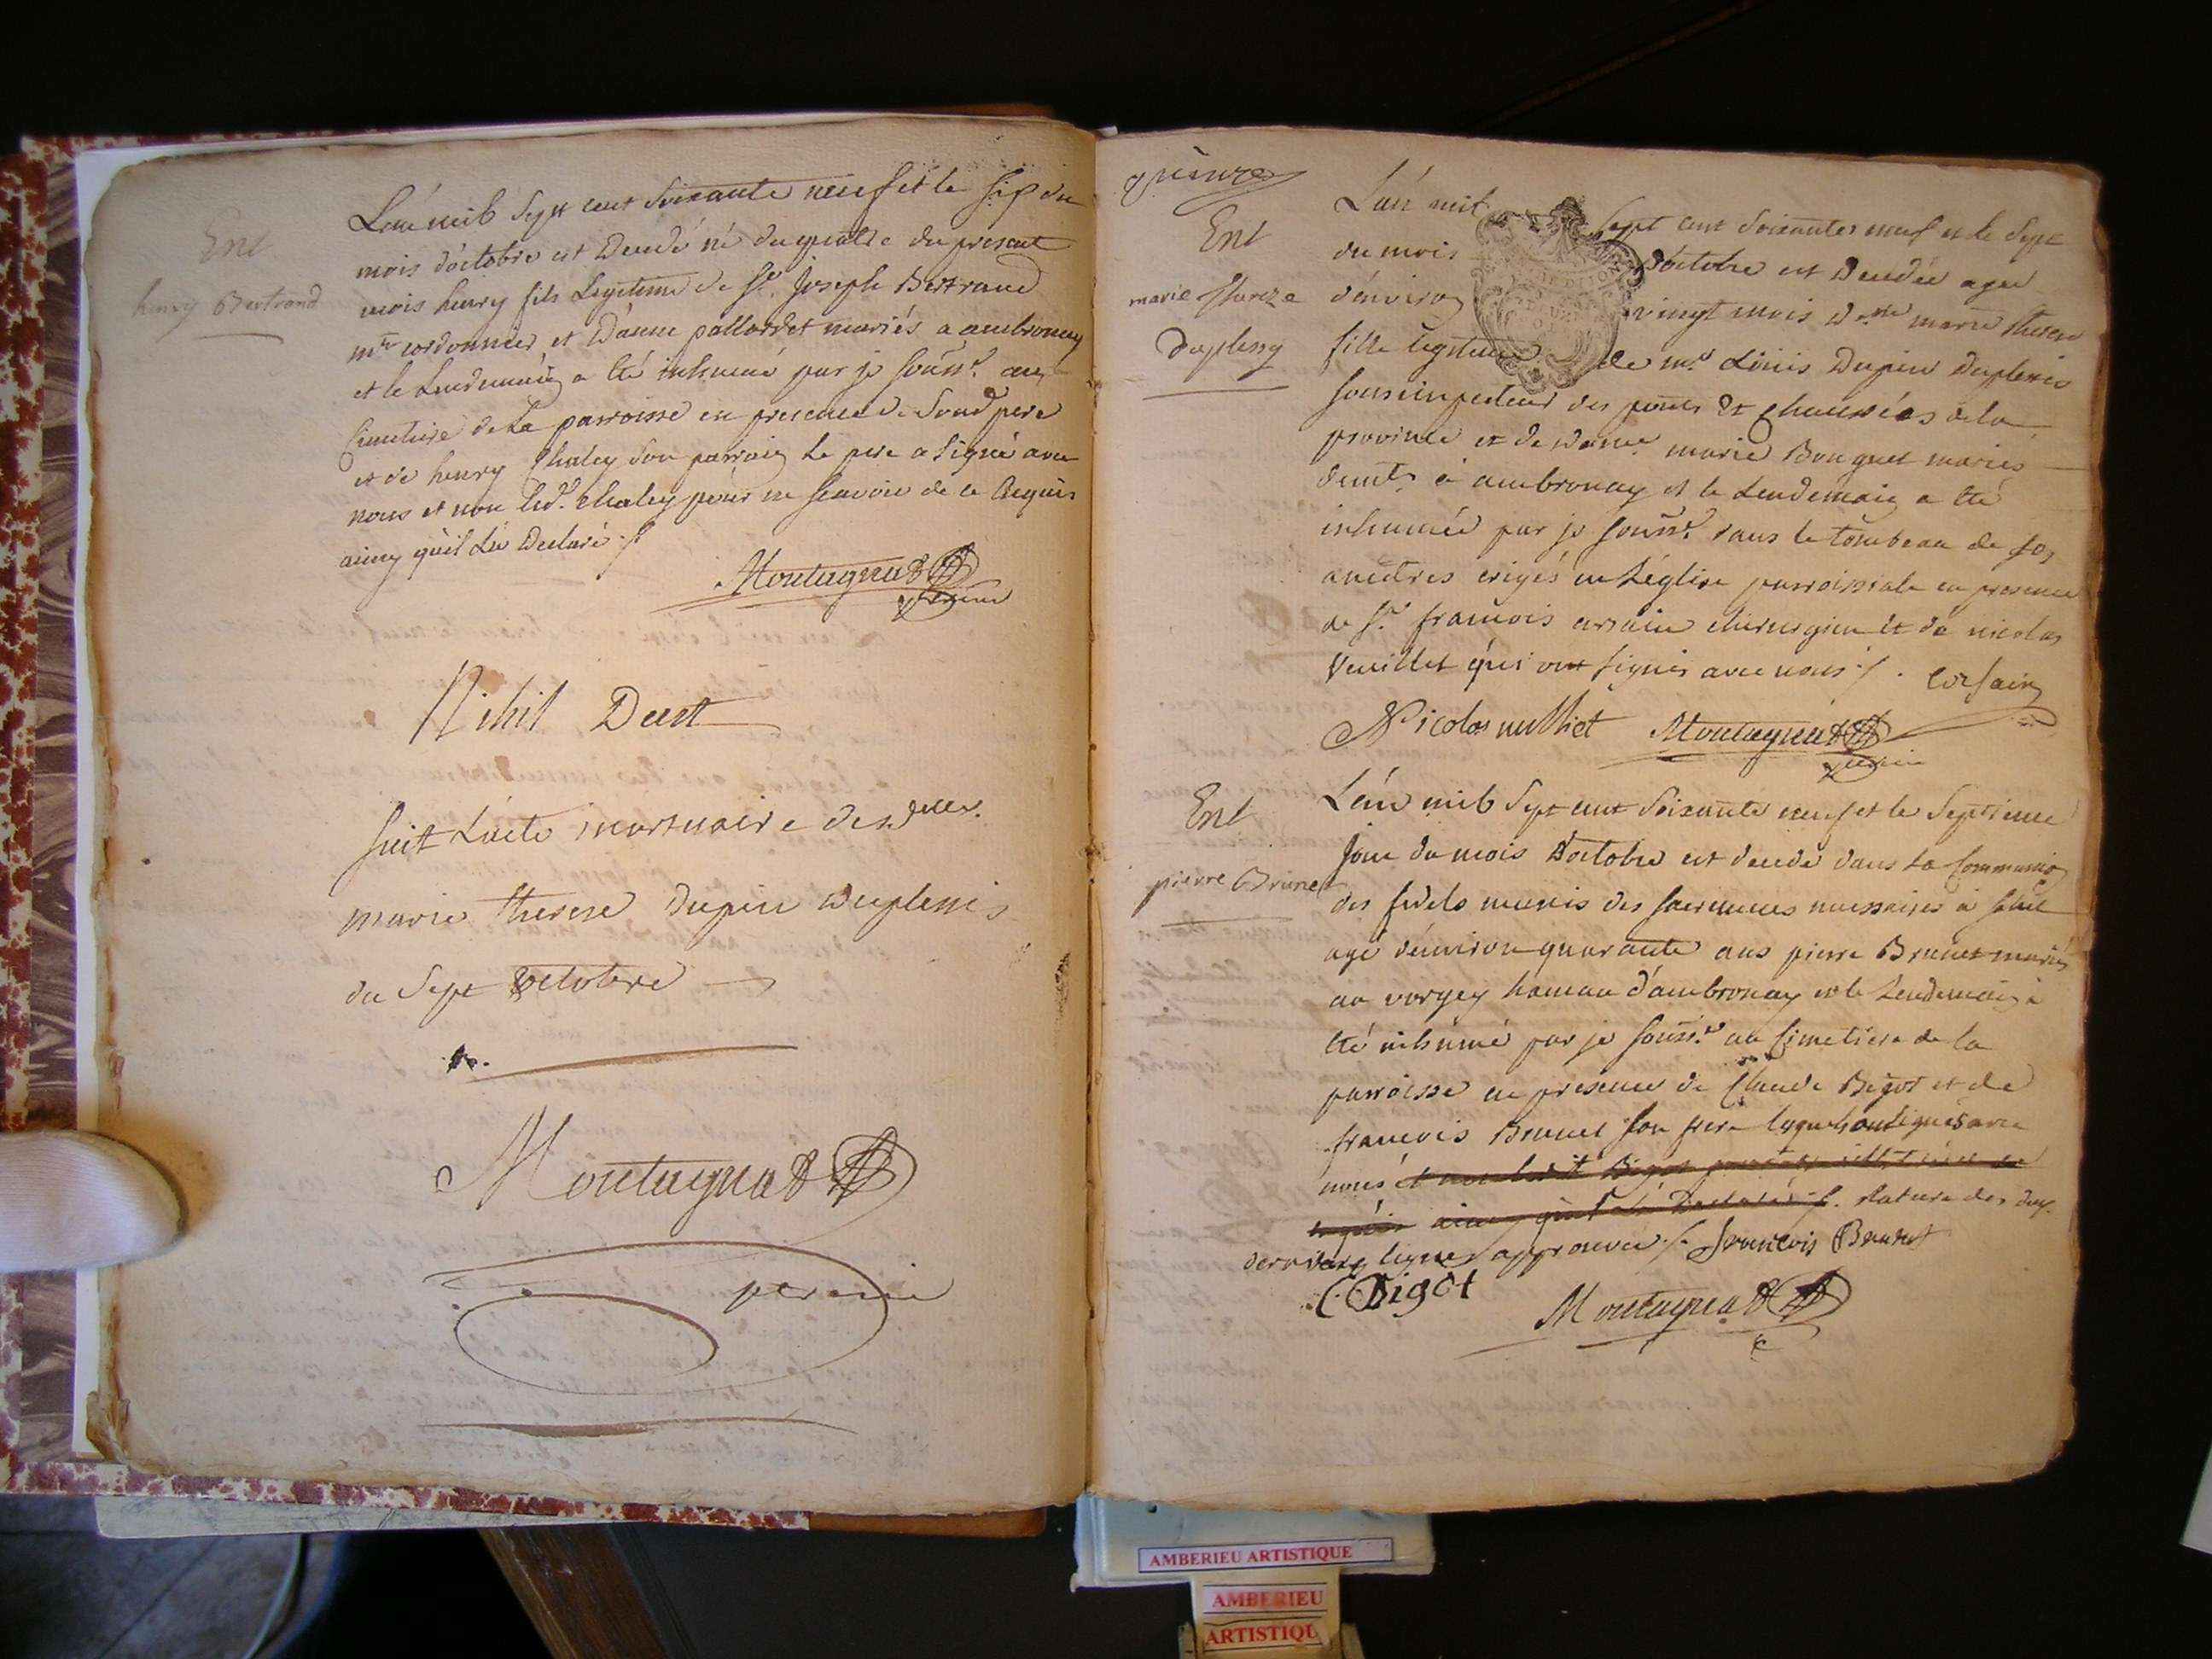 Ent
henry Bertrand
L'an mil sept cent soixante neuf et le six du
mois d'octobre est Decedé né du quatre du present
mois henry fils Legitime de Sr. Joseph Bertrand
mtre cordonnier et D'anne pallordet mariés a ambronay
et le Lendemain a été inhumé par je souss.é au
Cimetiere de La parroisse en presence de Sond pere
et de henry Chaley son parrain Le pere a signé avec
nous et non led. Chaley pour ne scavoir de ce Requis
ainsy qu'il L'a Declaré ./.
Montagnat
vicaire
Nihil Deest
suit L'acte mortuaire de dlle.
marie therese Dupin Duplessis
du sept octobre
Montagnat
vicaire
quinze
Ent
marie thereze
duplessy
L'an mil sept cent soixante neuf et le sept
du mois d'octobre est Decedée agee
d'environ vingt mois Dlle marie therese
fille legitime de mr. Louis Dupin Duplessis
sousinpecteur des ponts et chaussées de la
province et de dame marie Bouquet mariés
demts. à ambronay et le Lendemain a été
inhumée par je souss.é dans le tombeau de ses
ancêtres erigés en L'église parroissiale en presence
de Sr. francois corsain chirurgien et de nicolas
Vuillet qui ont signés avec nous ./. Corsain
Nicolas vulliet Montagnat
vicaire
Ent
pierre Brunet
L'an mil sept cent soixante neuf et le septieme
jour du mois d'octobre est decedé dans La Communion
des fidels munis des sacremens necessaires à salut
agé d'environ quarante ans pierre Brunet mariés
au vorgey hameau d'ambronay et le Lendemain a
été inhumé par je souss.é au Cimetiere de la
parroisse en presence de Claude Bigot et de
francois Brunet son frere lequels ont signés avec
nous et non ledit Bigot
requis ainsy qu'il l'a Declaré ./. Rature des deux
dernieres lignes approuvée ./. francois Brunet
C Bigot
Montagnat
AMBERIEU ARTISTIQUE
AMBERIEU
ARTISTIQU